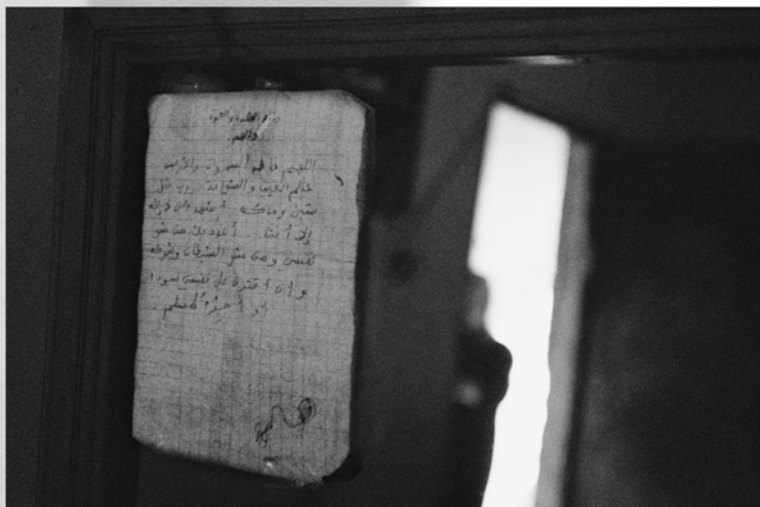 اللهم فاطر السموات والأرض
عالم الغيب والشهادة رب كل
شيئ ومالكه أشهد أن لا إله
إلا أنت أعوذ بك من شر
نفسي ومن شر الشيطان وشركه
و أن أقترف على نفسي سوءا
أو أجره لمسلم.